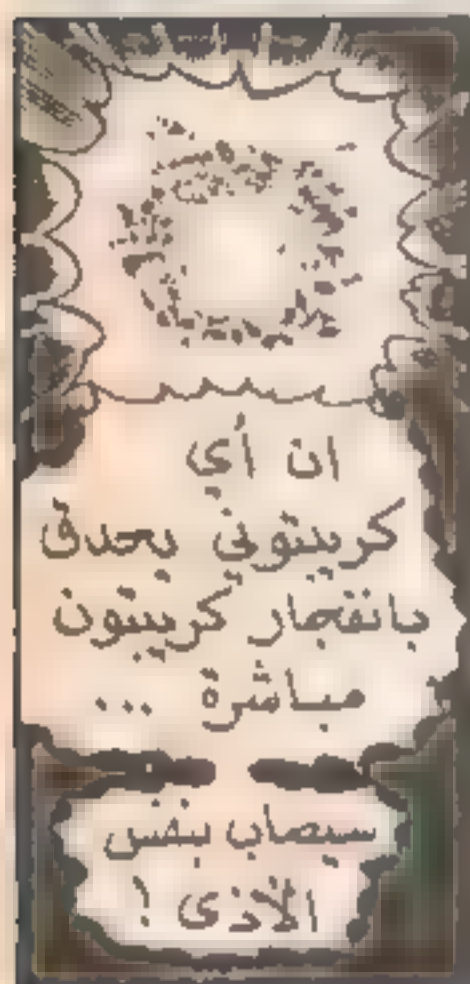 ان أي
كريبتوني يحدق
بانفجار كريبتون
مباشرة ...
سيصاب بنفس
الأذى !